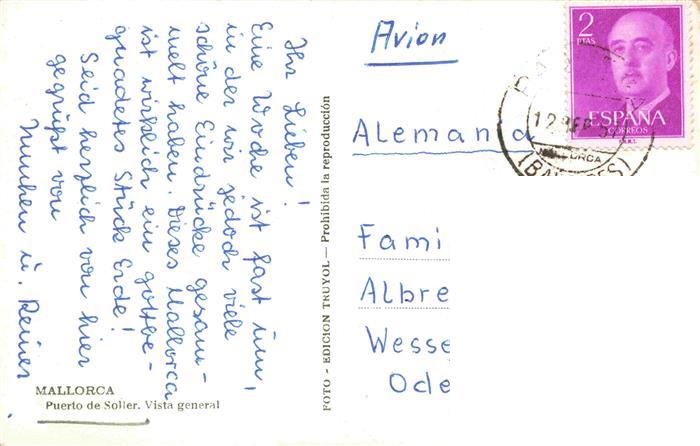 Ihr Lieben!
Eine Woche ist fast um,
in der wir jedoch viele
schöne Eindrücke gesam-
melt haben. Dieses Mallorca
ist wirklich ein gottbe-
gnadetes Stück Erde!
Seid herzlich von hier
gegrüßt von
u. Reiner.
MALLORCA
Puerto de Soller. Vista general
FOTO - EDICION TRUYOL - Prohibida la reproducción
Avion
2
PTAS
ESPAÑA
CORREOS
MALLORCA
Alemand
Fami
Albre
Wesse
Ode